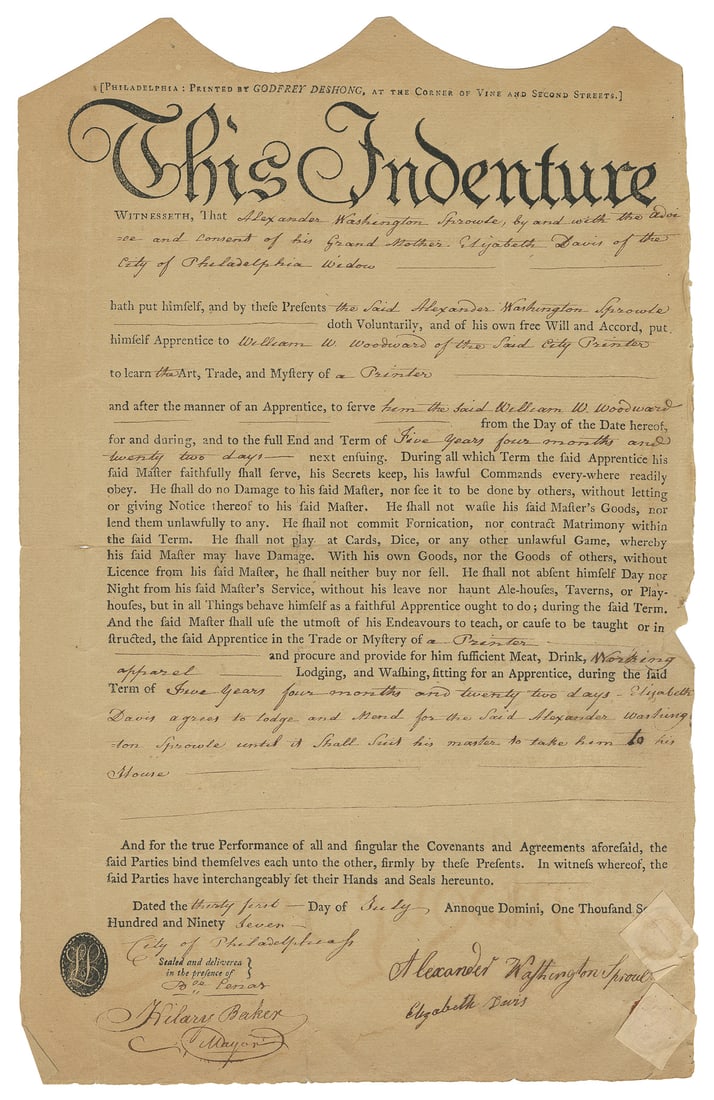 [PHILADELPHIA: PRINTED BY GODFREY DESHONG, AT THE CORNER OF VINE AND SECOND STREETS.]
This Indenture
WITNESSETH, THAT Alexander Washington Sprowle, by and with the advi
=ce and Consent of his Grand Mother Elizabeth Davis of the
City of Philadelphia Widow
hath put himself, and by theſe Preſents the Said Alexander Washington Sprowle
doth Voluntarily, and of his own free Will and Accord, put
himſelf Apprentice to William W Woodward of the Said City Printer
to learn the Art, Trade, and Myſtery of a Printer
and after the manner of an Apprentice, to ſerve him the Said William W. Woodward
from the Day of the Date hereof,
for and during, and to the full End and Term of Five Years four months and
twenty two days next enſuing. During all which Term the ſaid Apprentice his
ſaid Maſter faithfully ſhall ſerve, his Secrets keep, his lawful Commands every-where readily
obey. He ſhall do no Damage to his ſaid Maſter, nor ſee it to be done by others, without letting
or giving Notice thereof to his ſaid Maſter. He ſhall not waſte his ſaid Maſter's Goods, nor
lend them unlawfully to any. He ſhall not commit Fornication, nor contract Matrimony within
the ſaid Term. He ſhall not play at Cards, Dice, or any other unlawful Game, whereby
his ſaid Maſter may have Damage. With his own Goods, nor the Goods of others, without
Licence from his ſaid Maſter, he ſhall neither buy nor ſell. He ſhall not abſent himſelf Day nor
Night from his ſaid Maſter's Service, without his leave nor haunt Ale-houſes, Taverns, or Play-
houſes, but in all Things behave himſelf as a faithful Apprentice ought to do; during the ſaid Term.
And the ſaid Maſter ſhall uſe the utmoſt of his Endeavours to teach, or cauſe to be taught or in
ſtructed, the ſaid Apprentice in the Trade or Myſtery of a Printer
and procure and provide for him ſufficient Meat, Drink, Working
apparel Lodging, and Waſhing, fitting for an Apprentice, during the ſaid
Term of Five Years four months and twenty two days - Elizabeth
Davis agrees to lodge and Mend for the Said Alexander Washing
=ton Sprowle until it Shall Suit his master to take him to his
House
And for the true Performance of all and ſingular the Covenants and Agreements aforeſaid, the
ſaid Parties bind themſelves each unto the other, firmly by theſe Preſents. In witneſs whereof, the
ſaid Parties have interchangeably ſet their Hands and Seals hereunto.
Dated the thirty first Day of July Annoque Domini, One Thouſand Se
Hundred and Ninety Seven
City of Philadelphia ss
Sealed and delivered
in the preſence of
Alexander Washington Sprowl
Elizabeth Davis
Hilary Baker
Mayor